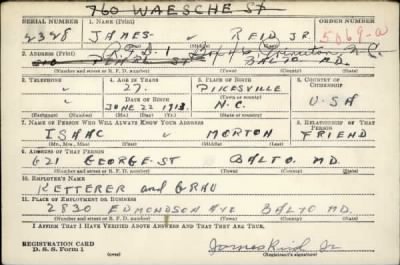 760 WAESCHE ST
SERIAL NUMBER 1. NAME (Print) ORDER NUMBER
2328 JAMES " REID JR. 5069-A
(First) (Middle) (Last)
2. ADDRESS (Print) R.F.D. 1 N.C.
PEARL ST BALTO MD.
(Number and street or R. F. D. number) (Town) (County) (State)
3. TELEPHONE 4. AGE IN YEARS 5. PLACE OF BIRTH 6. COUNTRY OF CITIZENSHIP
" 27. PIKESVILLE
DATE OF BIRTH (Town or county)
" JUNE 22 1913. N.C. USA
(Exchange) (Number) (Mo.) (Day) (Yr.) (State or country)
7. NAME OF PERSON WHO WILL ALWAYS KNOW YOUR ADDRESS 8. RELATIONSHIP OF THAT PERSON
ISAAC " MORTON FRIEND
(Mr., Mrs., Miss) (First) (Middle) (Last)
9. ADDRESS OF THAT PERSON
621 GEORGE ST BALTO. MD.
(Number and street or R. F. D. number) (Town) (County) (State)
10. EMPLOYER'S NAME
KETTERER and GRAU
11. PLACE OF EMPLOYMENT OR BUSINESS
2830 EDMONDSON AVE BALTO MD.
(Number and street or R. F. D. number) (Town) (County) (State)
I AFFIRM THAT I HAVE VERIFIED ABOVE ANSWERS AND THAT THEY ARE TRUE.
REGISTRATION CARD
D. S. S. Form 1 (over) James Reid Jr
(Registrant's signature)